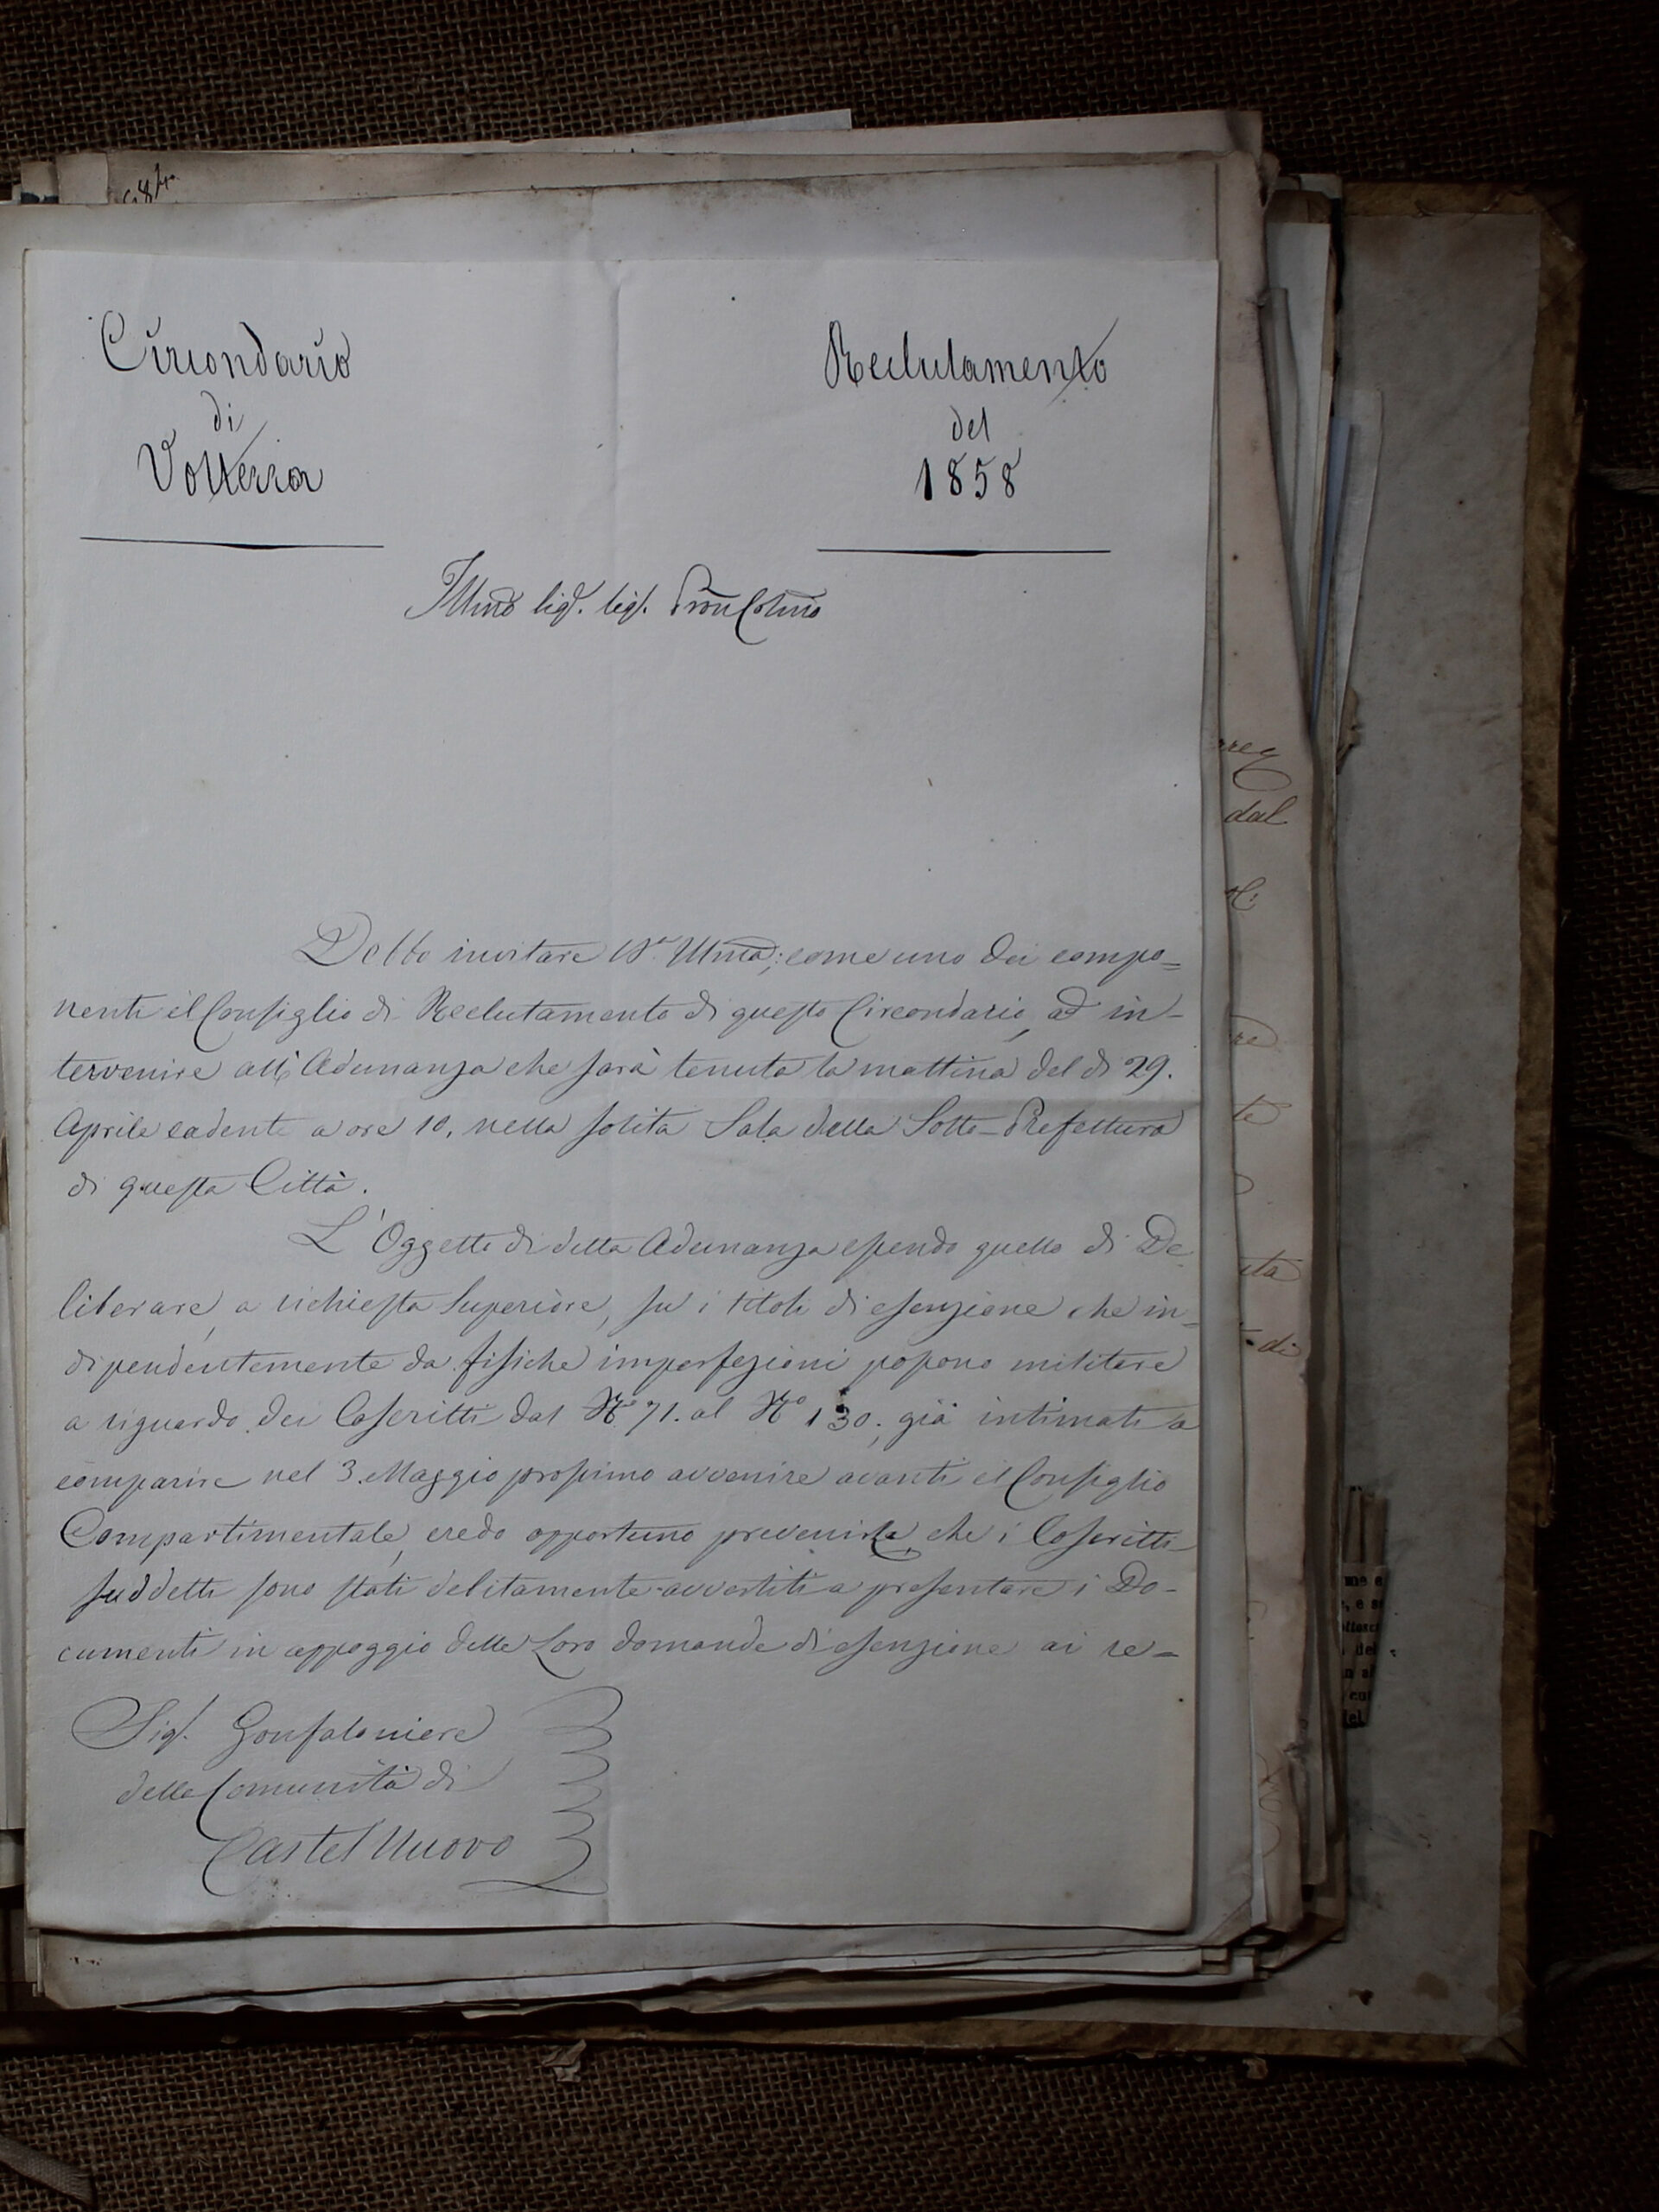 Circondario
di
Volterra
Reclutamento
del
1858
Illmo Sigr. Sigr. Pron Colmo
Debbo invitare VS. Illma; come uno dei compo=
nenti il Consiglio di Reclutamento di questo Circondario, ad in-
tervenire all'Adunanza che sarà tenuta la mattina del dì 29.
Aprile cadente a ore 10, nella solita Sala della Sotto-Prefettura
di questa Città.
L'Oggetto di detta Adunanza essendo quello di De
liberare, a richiesta Superiore, su i titoli di esenzione che in-
dipendentemente da fisiche imperfezioni possono militare
a riguardo dei Coscritti dal No. 71. al No 130; già intimati a
comparire nel 3. Maggio prossimo avvenire avanti il Consiglio
Compartimentale, credo opportuno prevenirla, che i Coscritti
suddetti sono stati debitamente avvertiti a presentare i Do-
cumenti in appoggio delle Loro domande di esenzione ai re=
Sigr. Gonfaloniere
della Comunità di
Castel Nuovo
dal
di